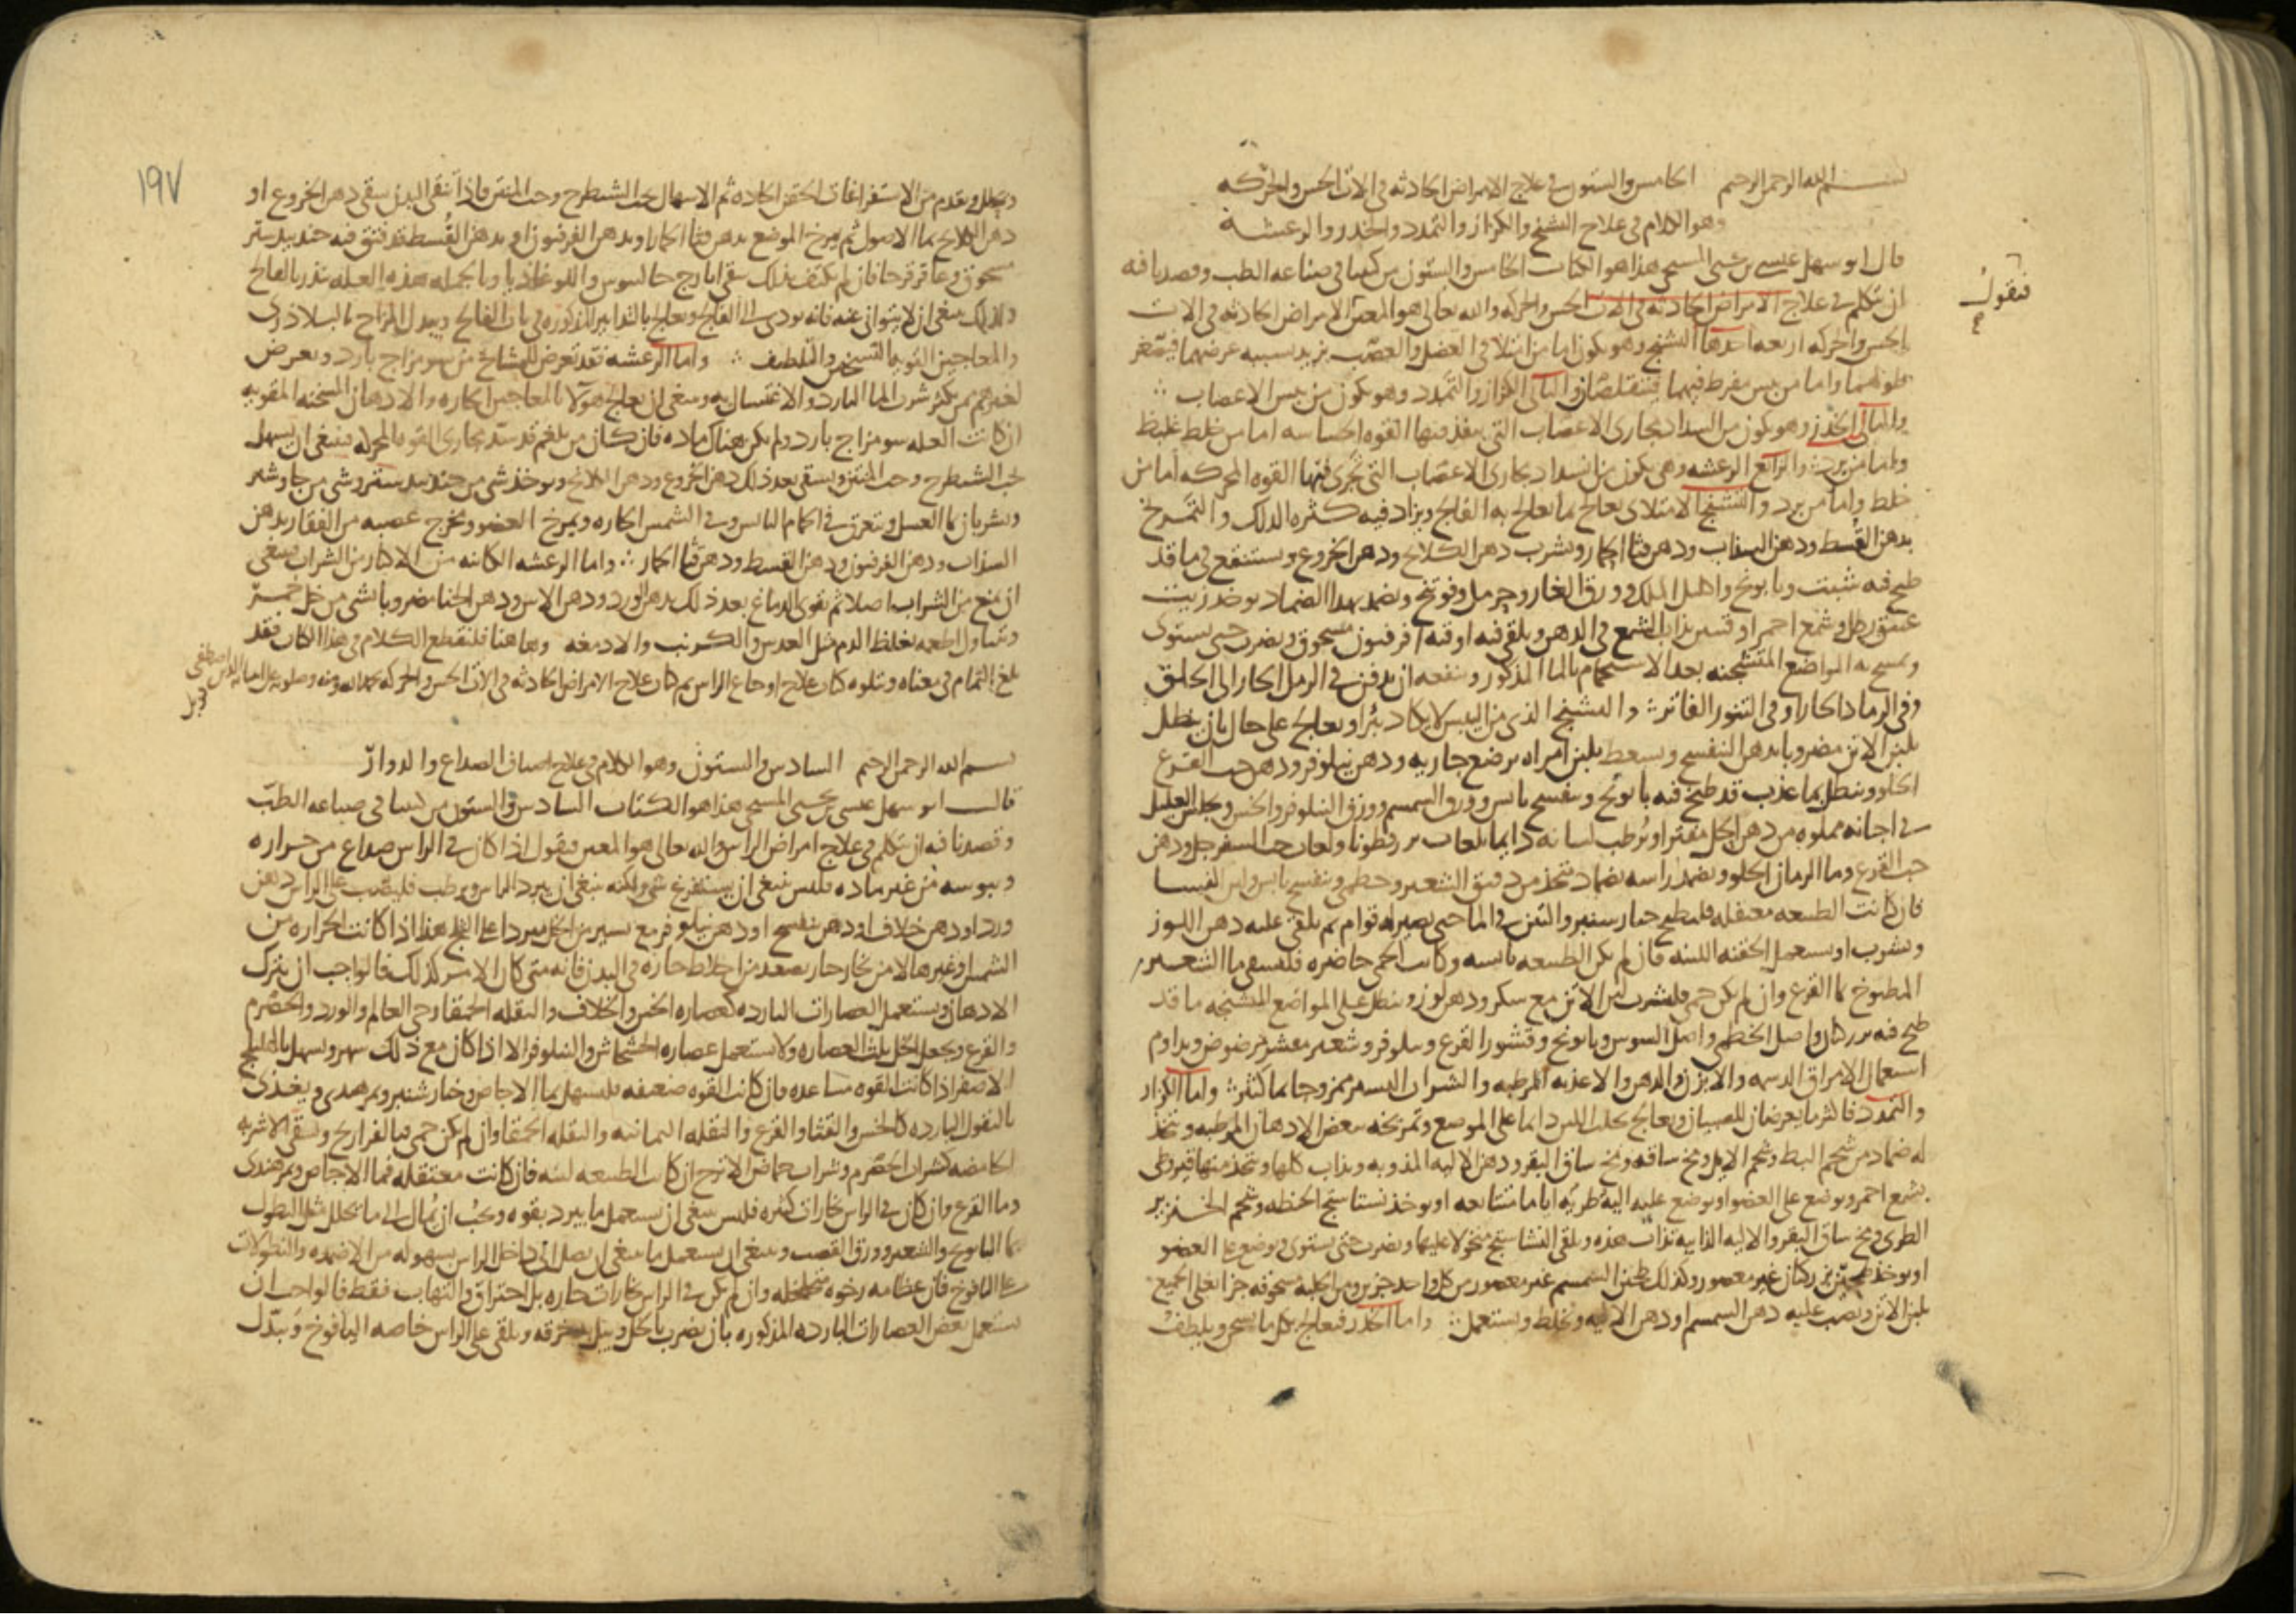 بسم الله الرحمن الرحيم الخامس والستون في علاج الامراض الحادثه في الات الحس والحركه
وهو الكلام في علاج التشنج والكزاز والتمدد والخدر والرعشه
قال ابو سهل عيسى بن يحيى المسيحي هذا هو الكتاب الخامس والستون من كتبنا في صناعه الطب وقصدنا فه
ان نتكلم في علاج الامراض الحادثه في الات الحس والحركه والله تعالى هو المعين الامراض الحادثه في الات
فنقول
الحس والحركه اربعه احدها التشنج وهو يكون اما من امتلا في العضل والعصب يزيد بسببه عرضهما فيصغر
طولهما واما من يبس مفرط فيهما فيتقلصان والثاني الكزاز والتمدد وهو يكون من يبس الاعصاب
والثالث الخدر وهو يكون من انسداد مجارى الاعصاب التي ينفذ منها القوه الحساسه اما من خلط غليظ
واما من برد والرابع الرعشه وهي يكون من انسداد مجارى الاعصاب التي تجرى فيها القوه المحركه اما من
خلط واما من برد والتشنج الامتلاى يعالج بما يعالج به الفالج ويزاد فيه كثره الدلك والتمريخ
بدهن القسط ودهن السذاب ودهن قثا الحمار ويشرب دهن الكلكلانج ودهن الخروع ويستنقع في ما قد
طبخ فه شبت وبابونج واكليل الملك وورق الغار وحرمل وفوتنج ويضمد بهذا الضماد يوخذ زيت
عتيق رطل وشمع احمر اوقيتين يذاب الشمع في الدهن ويلقى فيه اوقيه افرفيون مسحوق ويضرب حتى يستوى
ويمسح به المواضع المتشنجه بعد الاستحمام بالما المذكور وينفعه ان يدفن في الرمل الحار الى الحلق
وفي الرماد الحار او في التنور الفاتر والتشنج الذي من اليبس لا يكاد يبرا ويعالج على حال بان ينطل
بلبن الاتن مضروبا بدهن البنفسج ويسعط بلبن امراه ترضع جاريه ودهن نيلوفر ودهن حب القرع
الحلو وينطل بما عذب قد طبخ فيه بابونج وبنفسج يابس وورق السمسم وورق النيلوفر والخس ويجلس العليل
في اجانه مملوه من دهن الحل مفترا ويرطب لسانه دايما بلعاب بزر قطونا ولعاب حب السفرجل ودهن
حب القرع وما الرمان الحلو ويضمد راسه بضماد متخذ من دقيق الشعير وخطمي وبنفسج يابس
فان كانت الطبيعه معتقله فليطبخ خيار شنبر والتين في الما حتى يصير له قوام ثم يلقى عليه دهن اللوز
ويشرب او يستعمل الحقنه اللينه فان لم يكن الطبيعه يابسه وكانت الحمى حاضره فليسقى ما الشعير
المطبوخ بما القرع وان لم يكن حمى فليشرب لبن الاتن مع سكر ودهن لوز وينطل على المواضع المتشنجه ما قد
طبخ فيه بزر كتان واصل الخطمي واصل السوس وبابونج وقشور القرع ونيلوفر وشعير مقشر مرضوض ويداوم
استعمال الامراق الدسمه والابزن والدهن والاغذيه المرطبه والشراب اليسير ممزوجا بما كثير واما الكزاز
والتمدد فاكثر ما يعرضان للصبيان ويعالج بحلب اللبن دايما على الموضع وتمريخه ببعض الادهان المرطبه ويتخذ
له ضماد من شحم البط وشحم الايل ومخ ساقه ومخ ساق البقر ودهن الاليه المذوبه ويذاب كلها ويتخذ منها قيروطى
بشمع احمر ويوضع على العضو او يوضع عليه اليه طريه اياما متتابعه او يوخذ نشاستج الحنطه وشحم الخنزير
الطرى ومخ ساق البقر والاليه الذايبه تذاب هذه ويلقى النشاستج منخولا عليها ويضرب حتى يستوى ويوضع على العضو
او يوخذ طحين بزر كتان غير معصور وكذلك طحين السمسم غير معصور من كل واحد جزين ومن الحلبه مسحوقه جزا يغلى الجميع
بلبن الاتن ويصب عليه دهن السمسم او دهن الاليه ويخلط ويستعمل واما الخدر فيعالج بكل ما يسخن ويلطف
١٩٧
ويحلل ويقدم من الاستفراغات الحقن الحاده ثم الاسهال بحب الشيطرج وحب المنتن فاذا نقى البدن يسقى دهن الخروع او
دهن الكلكلانج بما الاصول ثم يمرخ الموضع بدهن قثا الحمار او بدهن الفرفيون او بدهن القسط قد فتق فيه جندبيدستر
مسحوق وعاقرقرحا فان لم يكتف بذلك سقى ايارج جالينوس واللوغاذيا وبالجمله هذه العله تنذر بالفالج
ولذلك ينبغي ان لا يتوانى عنه فانه يودى الى الفالج ويعالج بالتدابير المذكوره في باب الفالج ويبدل المزاج بالبلاذرى
والمعاجين القويه التسخين والتلطيف واما الرعشه فقد تعرض للمشايخ من سو مزاج بارد ويعرض
لغيرهم ممن يكثر شرب الما البارد والاغتسال به وينبغي ان يعالج هولا بالمعاجين الحاره والادهان المسخنه المقويه
ان كانت العله سو مزاج بارد ولم يكن هناك ماده فان كان من بلغم قد سد مجارى القوه المحركه فينبغي ان يسهل
بحب الشيطرج وحب المنتن ويسقى بعد ذلك دهن الخروع ودهن الكلكلانج ويوخذ شي من جندبيدستر وشي من جاوشير
ويشربان بما العسل ويتعرق في الحمام اليابس وفي الشمس الحاره ويمرخ العضو ومخرج عصبه من الفقار بدهن
السذاب ودهن الفرفيون ودهن القسط ودهن قثا الحمار واما الرعشه الكاينه من الاكثار من الشراب ينبغي
ان يمنع من الشراب اصلا ثم يقوى الدماغ بعد ذلك بدهن الورد ودهن الاس ودهن الحنا مضروبا بشى من خل خمر
ويتناول اطعمه يغلظ الدم مثل العدس والكرنب والادمغه وهاهنا فلنقطع الكلام في هذا الكتاب فقد
بلغ التمام في معناه ويتلوه كتاب علاج اوجاع الراس تم كتاب علاج الامراض الحادثه في الات الحس والحركه بحمد الله ومنه وصلوته على
قوبل
بسم الله الرحمن الرحيم السادس والستون وهو الكلام في علاج اصناف الصداع والدوار
قال ابو سهل عيسى بن يحيى المسيحي هذا هو الكتاب السادس والستون من كتبنا في صناعه الطب
وقصدنا فيه ان نتكلم في علاج امراض الراس والله تعالى هو المعين فنقول اذا كان في الراس صداع من حراره
ويبوسه من غير ماده فليس ينبغي ان يستفرغ شى ولكنه ينبغي ان يبرد الراس ويرطب فليصب على الراس دهن
ورد او دهن خلاف او دهن بنفسج او دهن نيلوفر مع يسير من الخل مبردا على الثلج هذا اذا كانت الحراره من
الشمس او غيرها لا من بخار حار يصعد من اخلاط حاره في البدن فانه متى كان الامر كذلك فالواجب ان يترك
الادهان ويستعمل العصارات البارده كعصاره الخس والخلاف والبقله الحمقا وحى العالم والورد والحصرم
والقرع ويجعل الخل ثلث العصاره ولا يستعمل عصاره الخشخاش والنيلوفر الا اذا كان مع ذلك سهر ويسهل بالهليلج
الاصفر اذا كانت القوه مساعده فان كانت القوه ضعيفه فليسهل بما الاجاص وخيار شنبر وتمر هندى ويغذى
بالبقول البارده كالخس والقثا والقرع والبقله اليمانيه والبقله الحمقا وان لم يكن حمى فبالفراريج ويسقى الاشربه
الحامضه كشراب الحصرم وشراب حماض الاترج ان كانت الطبيعه لينه فان كانت معتقله فما الاجاص وتمر هندى
وما القرع وان كان في الراس بخارات كثيره فليس ينبغي ان يستعمل ما يبرد بقوه ويجب ان يمال الى ما يحلل مثل النطول
بما البابونج والشعير وورق القصب وينبغي ان يستعمل ما ينبغي ان يصل الى داخل الراس بسهوله من الاضمده والنطولات
على اليافوخ فان عظامه رخوه متخلخله وان لم يكن في الراس بخارات حاره بل احتراق والتهاب فقط فالواجب ان
يستعمل بعض العصارات البارده المذكوره بان يضرب بالخل ويبل خرقه ويلقى على الراس خاصه اليافوخ ويبدل